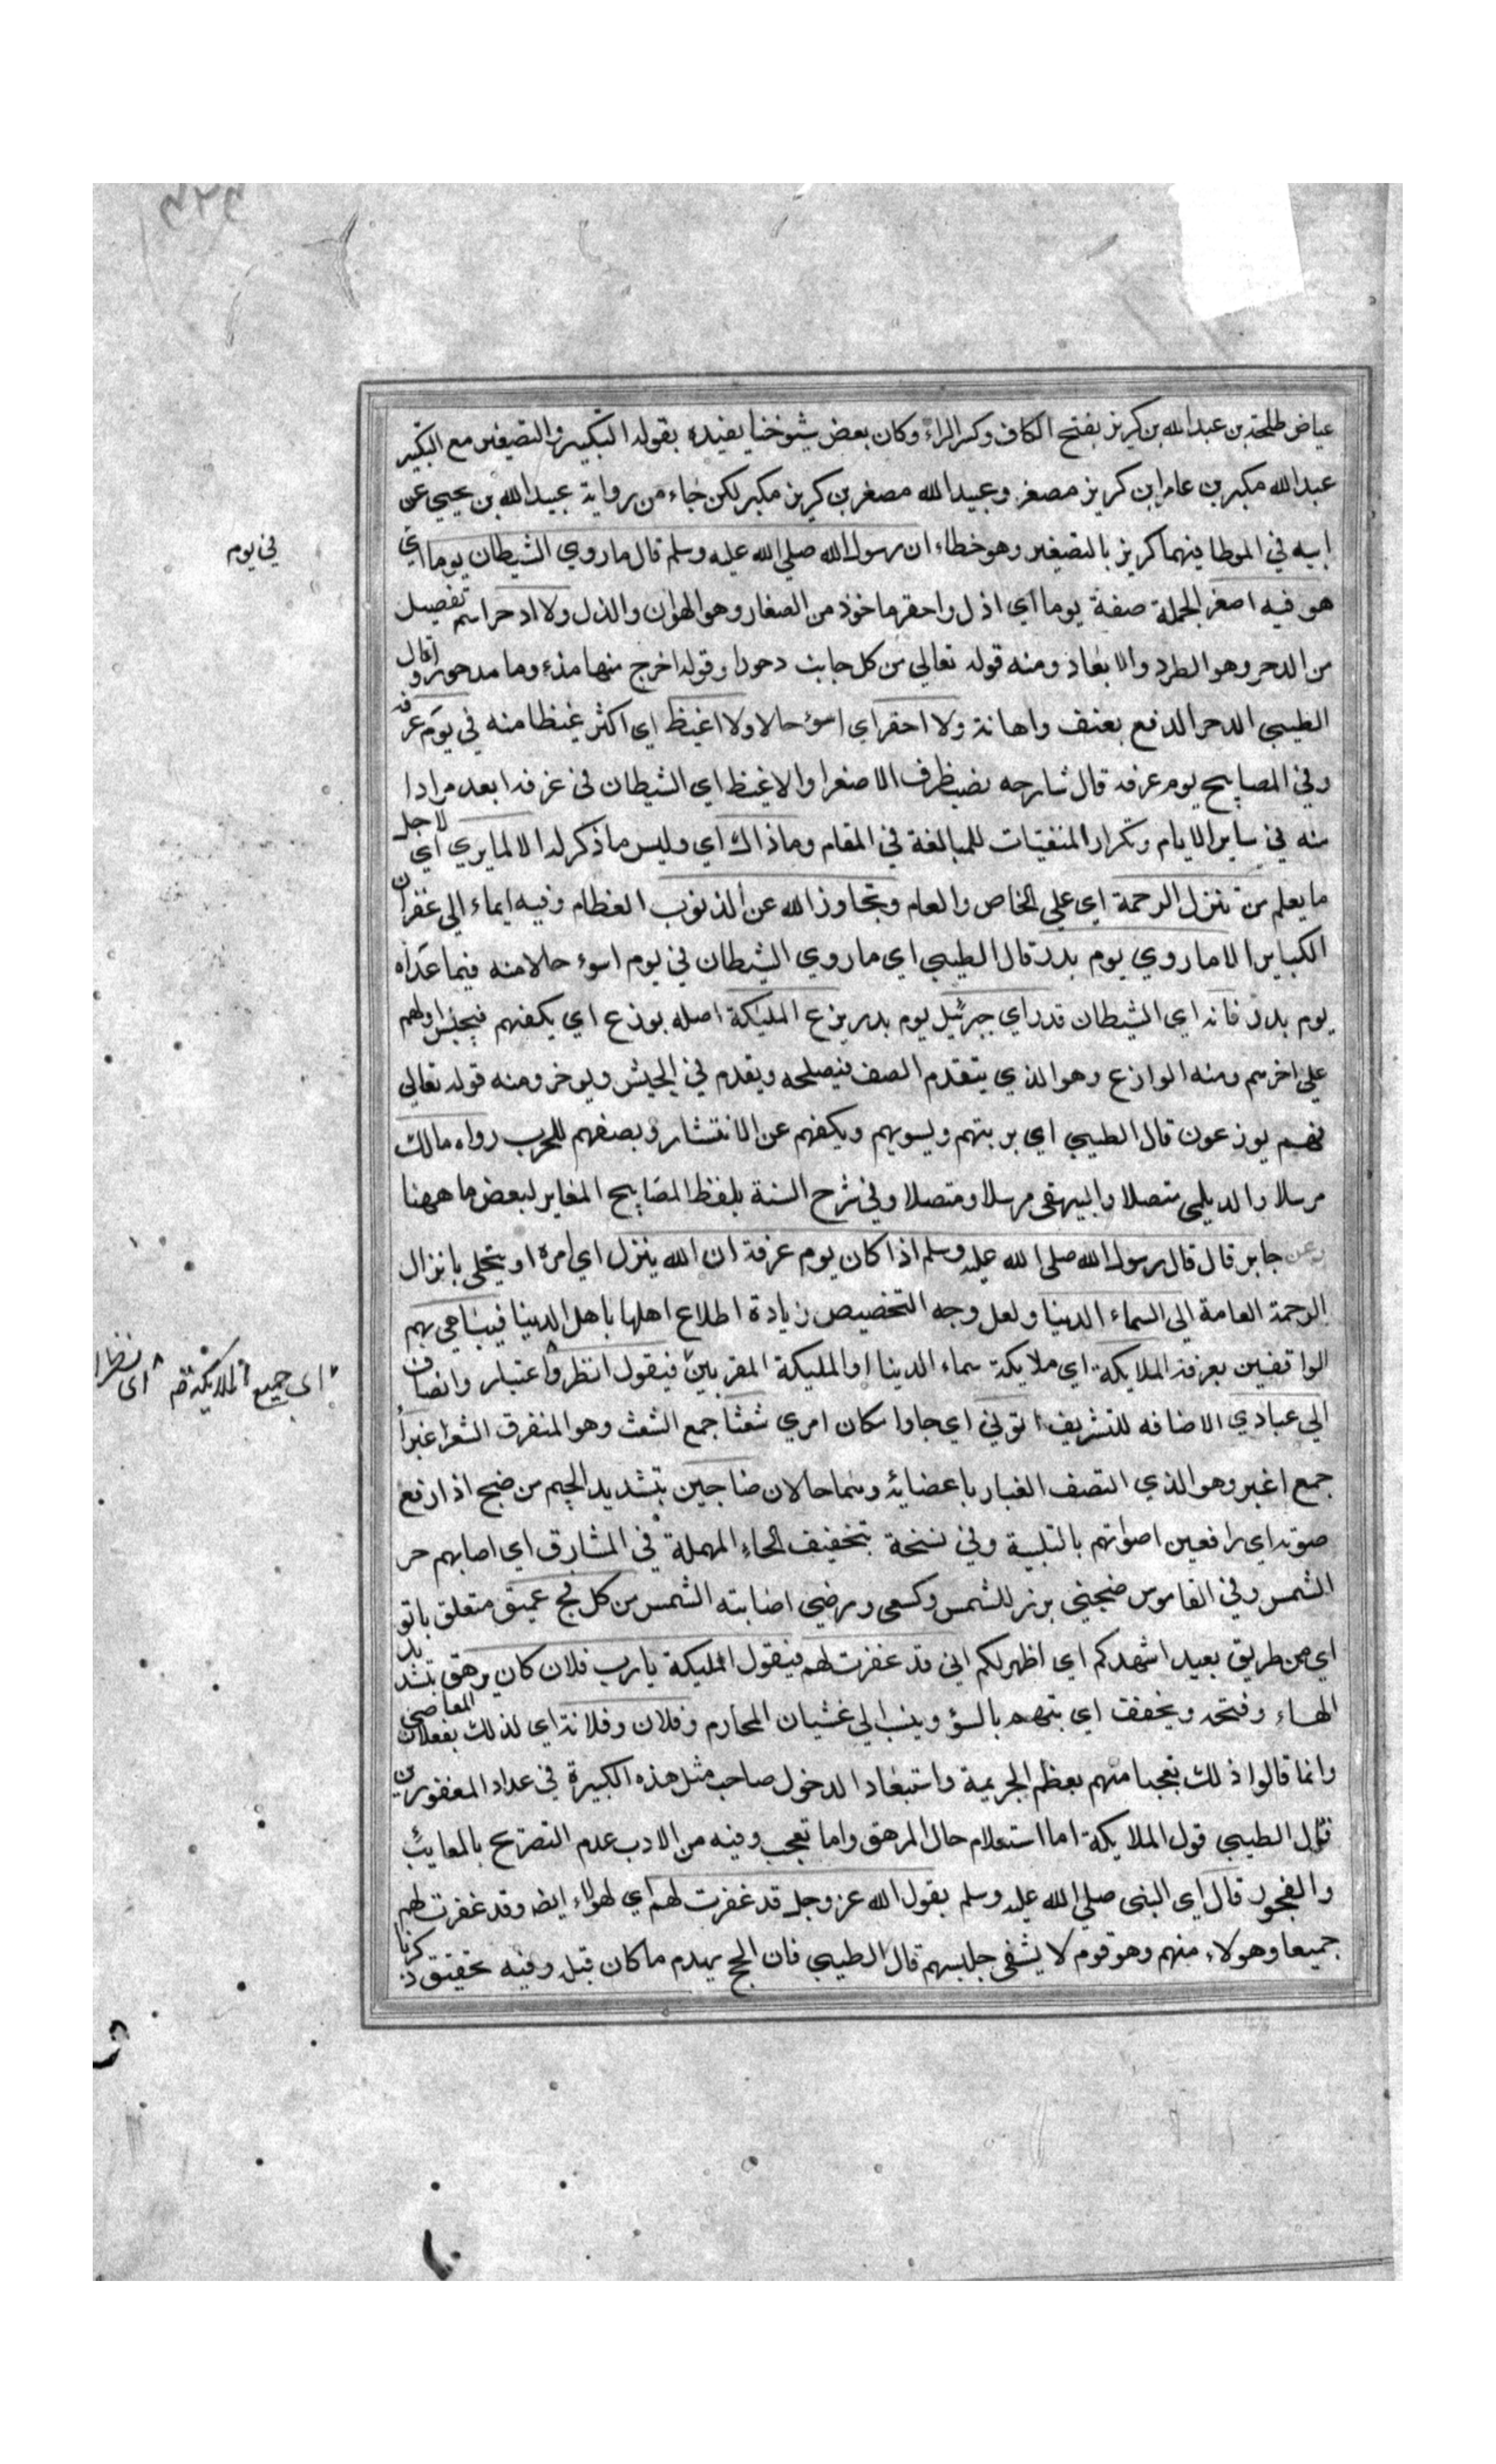 عياض طلحة بن عبدالله بن كريز بفتح الكاف وكسر الراء وكان بعض شيوخنا يفيده بقوله التكبير والتصغير مع التكبير
عبدالله مكبر بن عامر ابن كريز مصغر وعبيد الله مصغر بن كريز مكبر لكن جاء من رواية عبيد الله بن يحيي عن
ابيه في الموطا فيهما كريز بالتصغير وهو خطاء ان رسول الله صلي الله عليه وسلم قال ما روي الشيطان يوما اي
في يوم
هو فيه اصغر الجملة صفة يوما اي اذل واحقر ماخوذ من الصغار وهو الهوان والذل ولا ادحر اسم تفصيل
من الدحر وهو الطرد والابعاد ومنه قوله تعالي من كل جانب دحورا وقوله اخرج منها مذءوما مدحورا وقال
الطيبي الدحر الدفع بعنف واهانة ولا احقر اي اسوء حالا ولا اغيظ اي اكثر غيظا منه في يوم عرفه
وفي المصابيح يوم عرفه قال شارحه نصب ظرف الاصغر او الاغيظ اي الشيطان في عرفه ابعد مرادا
منه في ساير الايام وتكرار المنفيات للمبالغة في المقام وما ذاك اي وليس ما ذكر له الا لما يري اي لاجل
ما يعلم من تنزل الرحمة اي علي الخاص والعام وتجاوز الله عن الذنوب العظام وفيه ايماء الي غفران
الكباير الا ما روي يوم بدر قال الطيبي اي ما روي الشيطان في يوم اسوء حالا منه فيما عداه
يوم بدر فانه اي الشيطان قد راي جبرئيل يوم بدر يزع المليكة اصله يوزع اي يكفهم فيحبس اولهم
علي اخرهم ومنه الوازع وهو الذي يتقدم الصف فيصلحه ويقدم في الجيش ويوخر ومنه قوله تعالي
فهم يوزعون قال الطيبي اي يرتبهم ويسويهم ويكفهم عن الانتشار ويصفهم للحرب رواه مالك
مرسلا والديلمي متصلا والبيهقي مرسلا ومتصلا وفي شرح السنة بلفظ المصابيح المغاير لبعض ما ههنا
وعن جابر قال قال رسول الله صلي الله عليه وسلم اذا كان يوم عرفة ان الله ينزل اي امره او يتجلي بانزال
الرحمة العامة الي السماء الدنيا ولعل وجه التخصيص زيادة اطلاع اهلها باهل الدنيا فيباهي بهم
الواقفين بعرفة الملايكة اي ملايكة سماء الدنيا او المليكة المقربين فيقول انظروا اعتبار وانصاف
اي جميع الملايكة اي نظر
الي عبادي الاضافه للتشريف اتوني اي جاوا مكان امري شعثا جمع الشعث وهو المتفرق الشعر غبرا
جمع اغبر وهو الذي التصف الغبار باعضائه وهما حالان ضاجين بتشديد الجيم من ضج اذا رفع
صوته اي رافعين اصواتهم بالتلبية وفي نسخة بتخفيف الحاء المهملة في المشارق اي اصابهم حر
الشمس وفي القاموس ضحي برز للشمس وكسعي ورضي اصابته الشمس من كل فج عميق متعلق باتو
اي من طريق بعيد اشهدكم اي اظهر لكم اني قد غفرت لهم فيقول المليكة يا رب فلان كان يرهق بتشديد
الهاء وفتحه ويخفف اي يتهم بالسؤ وينسب الي غشيان المحارم وفلان وفلانة اي لذلك يفعلان المعاصي
وانما قالوا ذلك تعجبا منهم بعظم الجريمة واستبعاد الدخول صاحب مثل هذه الكبيرة في عداد المغفورين
قال الطيبي قول الملايكة اما استعلام حال المرهق واما تعجب وفيه من الادب عدم التصريح بالمعايب
والفجور قال اي النبي صلي الله عليه وسلم يقول الله عز وجل قد غفرت لهم اي لهولاء ايضه وقد غفرت لهم
جميعا وهولاء منهم وهو قوم لا يشقي جليسهم قال الطيبي فان الحج يهدم ما كان قبله وفيه تحقيق ذكرنا